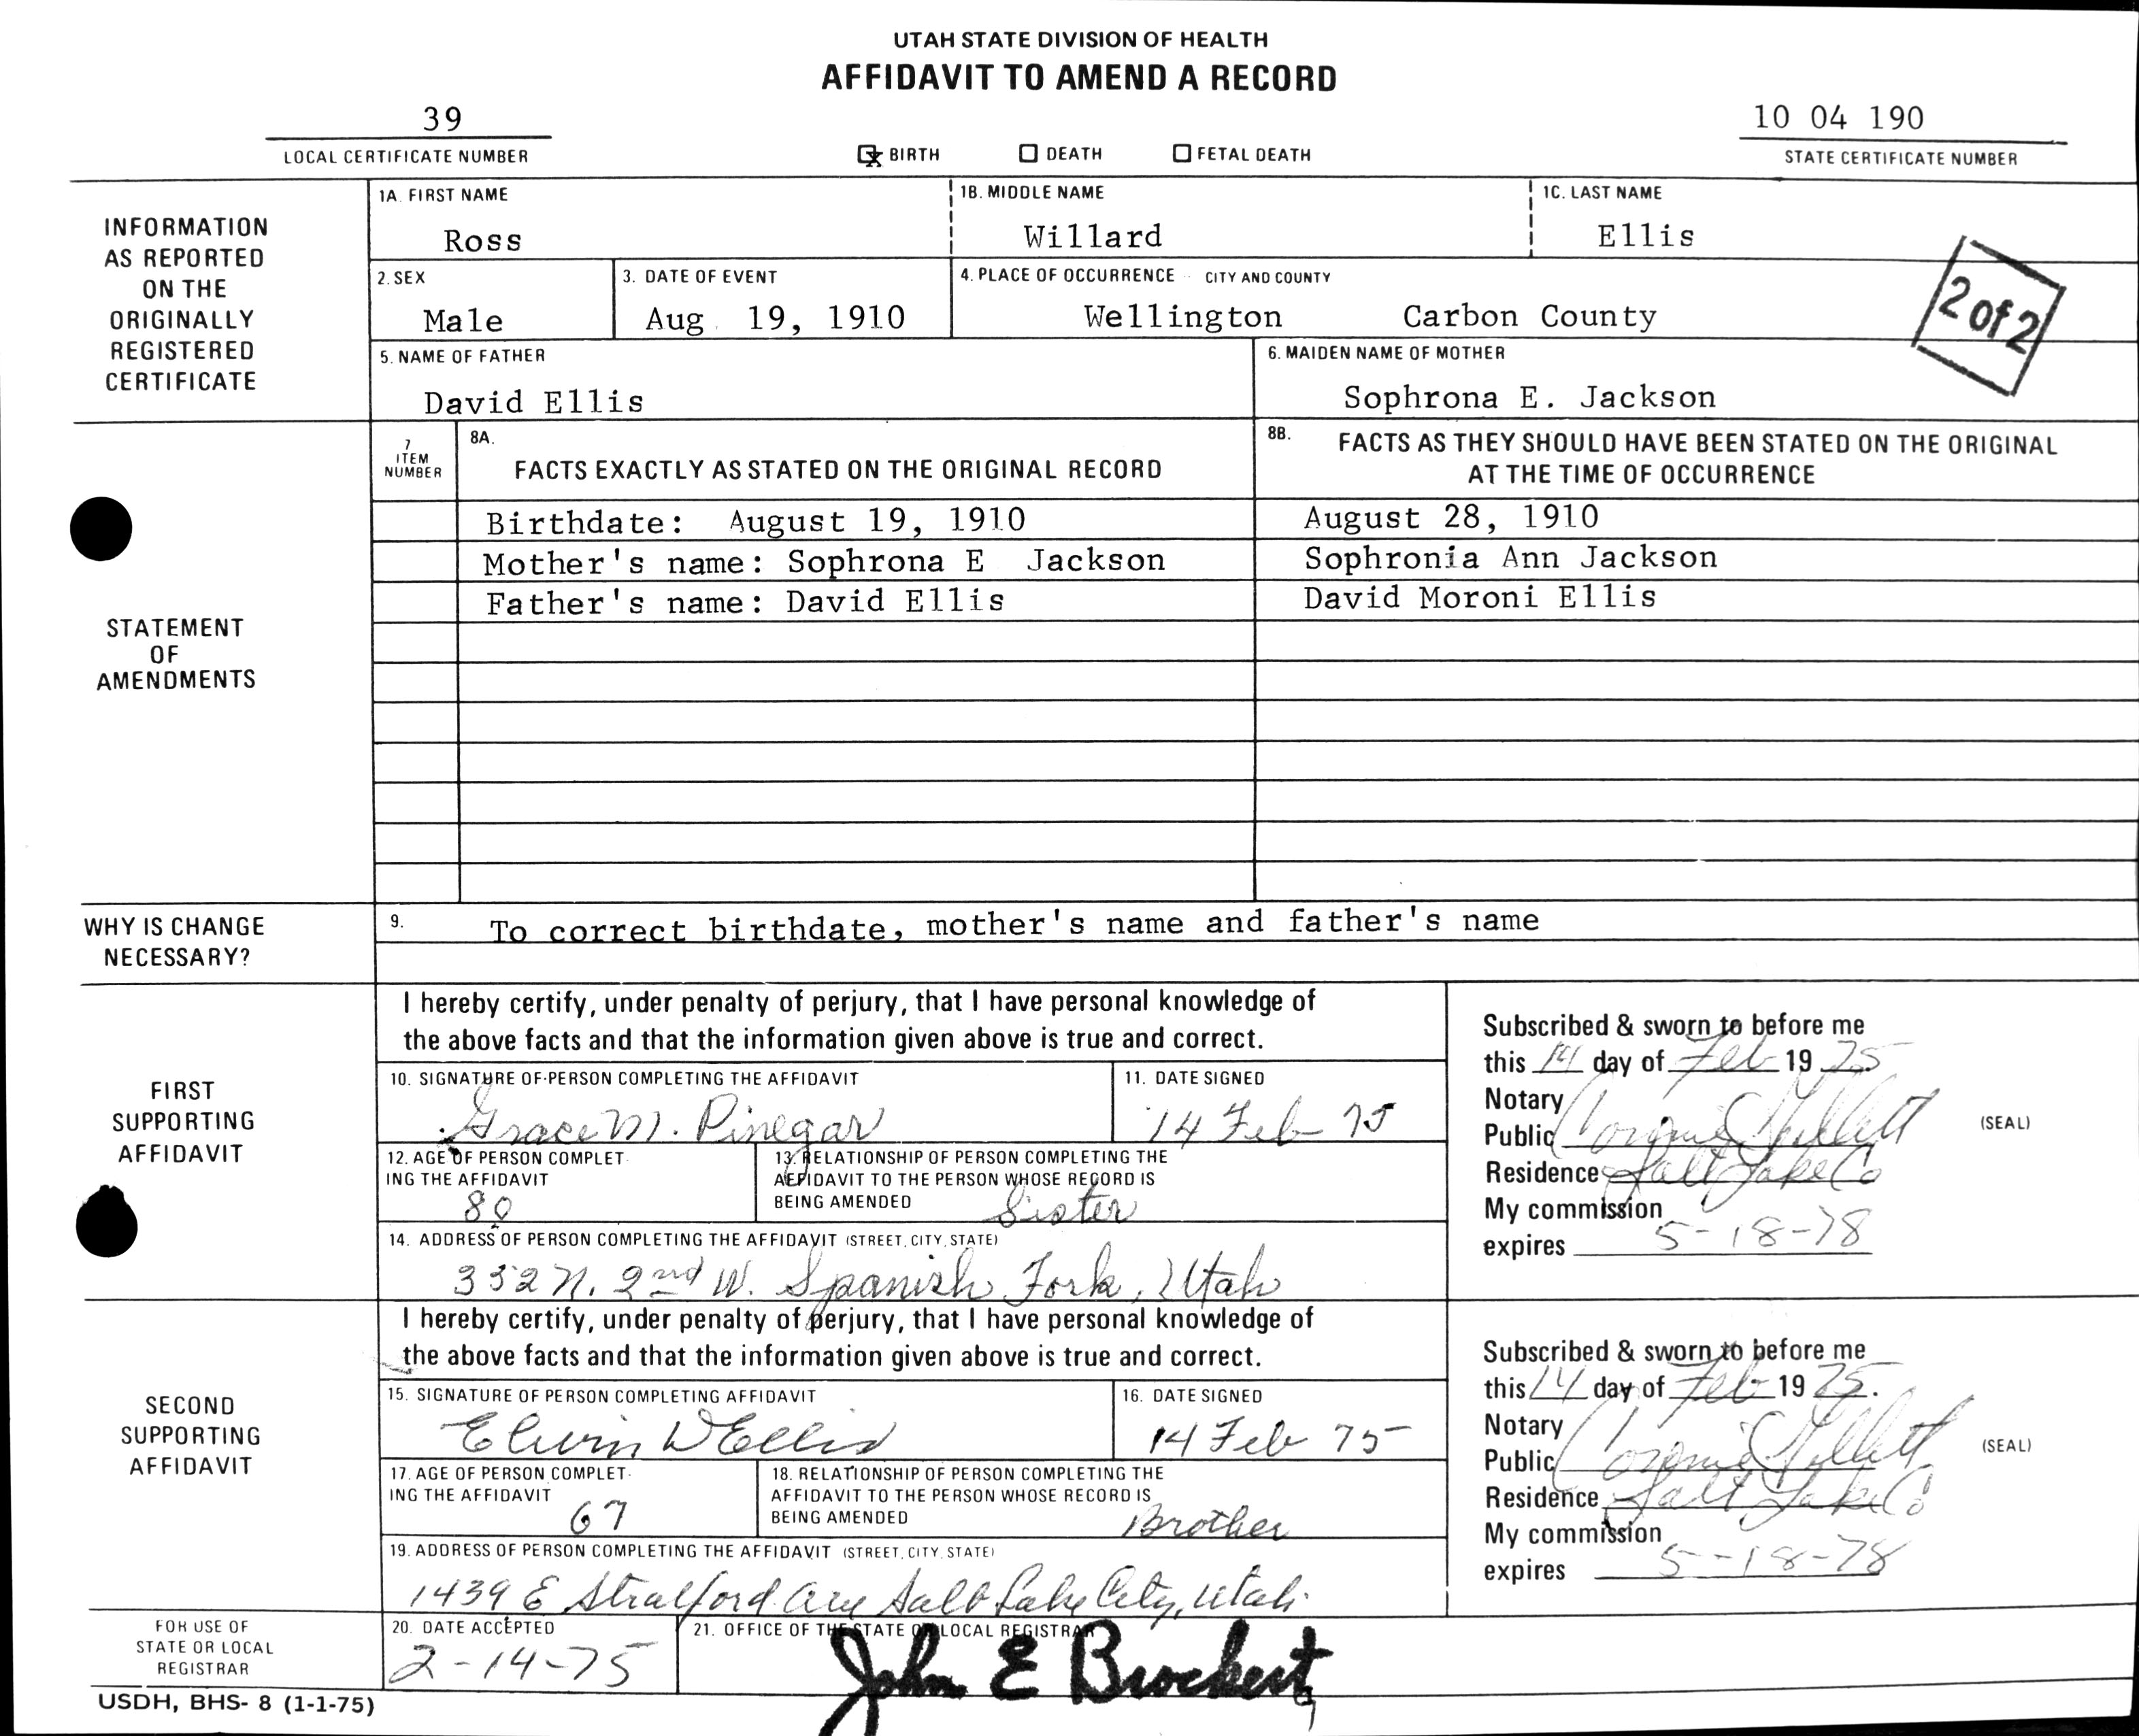 UTAH STATE DIVISION OF HEALTH
AFFIDAVIT TO AMEND A RECORD
39
10 04 190
LOCAL CERTIFICATE NUMBER
x BIRTH DEATH FETAL DEATH
STATE CERTIFICATE NUMBER
INFORMATION
AS REPORTED
ON THE
ORIGINALLY
REGISTERED
CERTIFICATE
1A. FIRST NAME 1B. MIDDLE NAME 1C. LAST NAME
Ross Willard Ellis
2. SEX 3. DATE OF EVENT 4. PLACE OF OCCURRENCE - CITY AND COUNTY
Male Aug. 19, 1910 Wellington Carbon County
2 of 2
5. NAME OF FATHER 6. MAIDEN NAME OF MOTHER
David Ellis Sophrona E. Jackson
STATEMENT
OF
AMENDMENTS
7
ITEM
NUMBER
8A.
FACTS EXACTLY AS STATED ON THE ORIGINAL RECORD
8B. FACTS AS THEY SHOULD HAVE BEEN STATED ON THE ORIGINAL
AT THE TIME OF OCCURRENCE
Birthdate: August 19, 1910 August 28, 1910
Mother's name: Sophrona E Jackson Sophronia Ann Jackson
Father's name: David Ellis David Moroni Ellis
WHY IS CHANGE
NECESSARY?
9. To correct birthdate, mother's name and father's name
FIRST
SUPPORTING
AFFIDAVIT
I hereby certify, under penalty of perjury, that I have personal knowledge of
the above facts and that the information given above is true and correct.
10. SIGNATURE OF PERSON COMPLETING THE AFFIDAVIT 11. DATE SIGNED
Grace M. Pinegar 14 Feb 75
12. AGE OF PERSON COMPLET-
ING THE AFFIDAVIT
80
13. RELATIONSHIP OF PERSON COMPLETING THE
AFFIDAVIT TO THE PERSON WHOSE RECORD IS
BEING AMENDED Sister
14. ADDRESS OF PERSON COMPLETING THE AFFIDAVIT (STREET, CITY, STATE)
352 N. 2nd W. Spanish Fork, Utah
Subscribed & sworn to before me
this 14 day of Feb 19 75
Notary
Public
(SEAL)
Residence Salt Lake Co
My commission
expires 5-18-78
SECOND
SUPPORTING
AFFIDAVIT
I hereby certify, under penalty of perjury, that I have personal knowledge of
the above facts and that the information given above is true and correct.
15. SIGNATURE OF PERSON COMPLETING AFFIDAVIT 16. DATE SIGNED
Elwin D Ellis 14 Feb 75
17. AGE OF PERSON COMPLET-
ING THE AFFIDAVIT
67
18. RELATIONSHIP OF PERSON COMPLETING THE
AFFIDAVIT TO THE PERSON WHOSE RECORD IS
BEING AMENDED Brother
19. ADDRESS OF PERSON COMPLETING THE AFFIDAVIT (STREET, CITY, STATE)
1439 E Stratford Ave Salt Lake City, Utah.
Subscribed & sworn to before me
this 14 day of Feb 19 75.
Notary
Public
(SEAL)
Residence Salt Lake Co
My commission
expires 5-18-78
FOR USE OF
STATE OR LOCAL
REGISTRAR
20. DATE ACCEPTED 21. OFFICE OF THE STATE OR LOCAL REGISTRAR
2-14-75 John E Brockert
USDH, BHS- 8 (1-1-75)